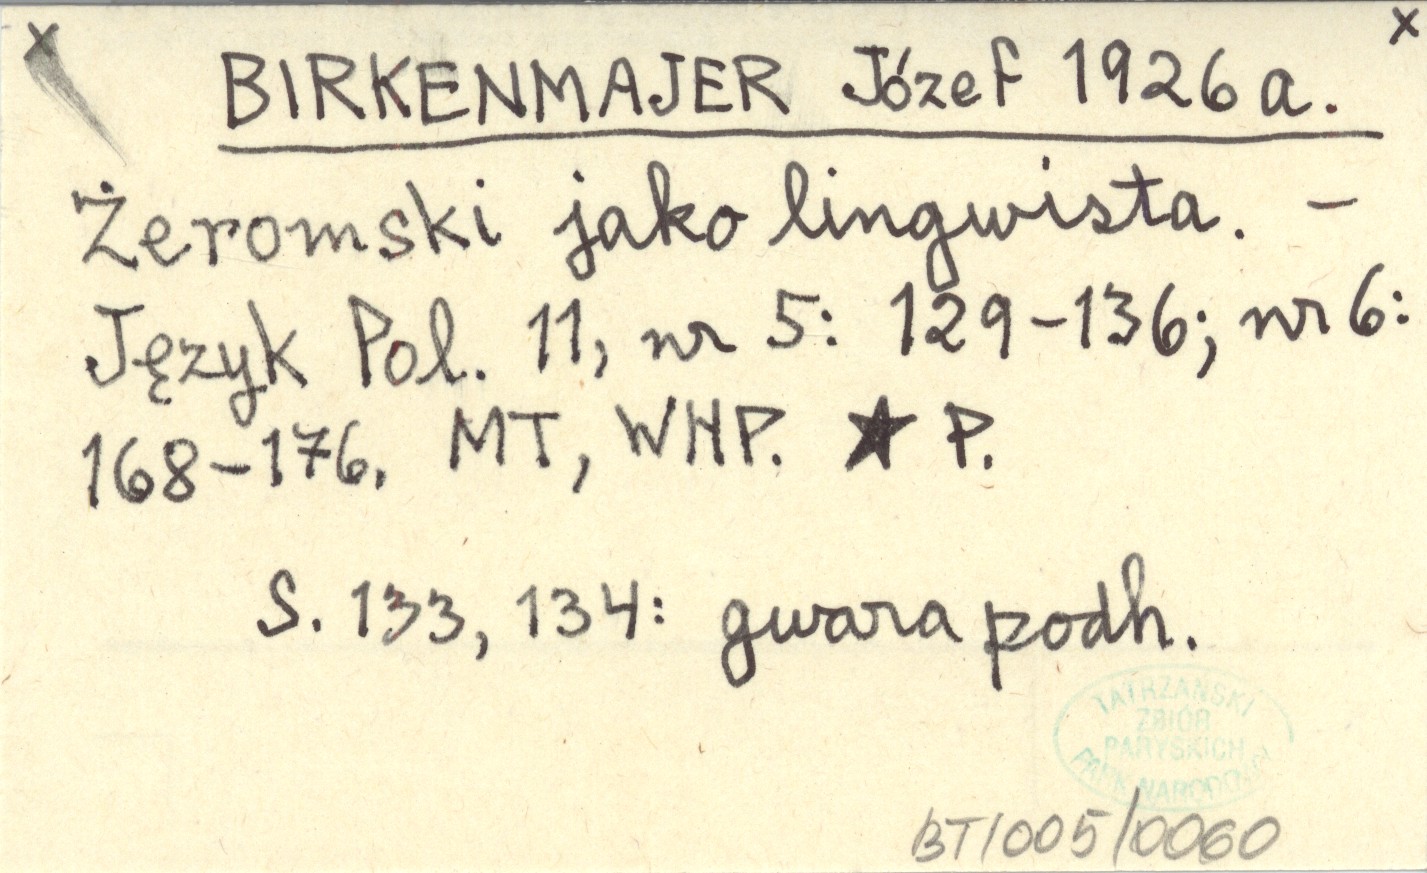 x x
BIRKENMAJER Józef 1926 a.
Żeromski jako lingwista. –
Język Pol. 11, nr 5: 129–136; nr 6:
168–176. MT, WHP. ★ P.
S. 133, 134: gwara podh.
TATRZAŃSKI
ZBIÓR
PARYSKICH
PARK NARODOWY
BT/005/0060